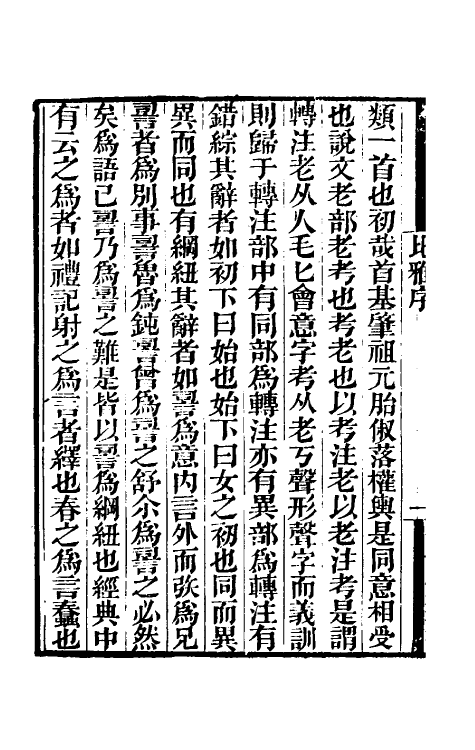 比雅序
一
類一首也初哉首基肇祖元胎俶落權輿是同意相受
也說文老部老考也考老也以考注老以老注考是謂
轉注老从人毛匕會意字考从老丂聲形聲字而義訓
則歸于轉注部中有同部爲轉注亦有異部爲轉注有
錯綜其辭者如初下曰始也始下曰女之初也同而異
異而同也有綱紐其辭者如䛐爲意內言外而矤爲兄
䛐者爲別事䛐魯爲鈍䛐曾爲䛐之舒尒爲䛐之必然
矣爲語已䛐乃爲䛐之難是皆以䛐爲綱紐也經典中
有云之爲者如禮記射之爲言者繹也春之爲言蠢也